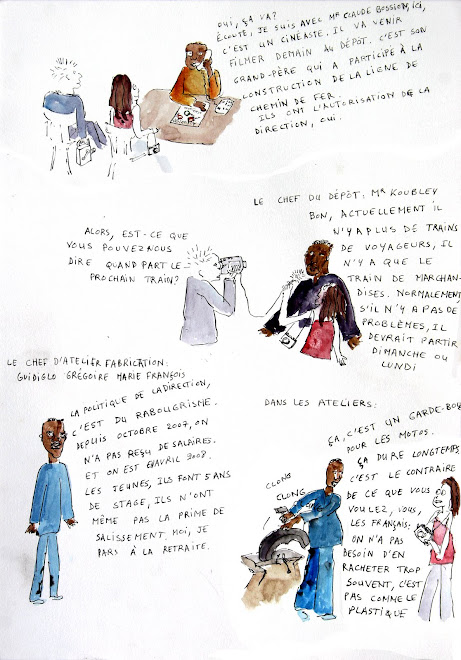 OUI, ÇA VA?
ÉCOUTE, JE SUIS AVEC MR CLAUDE BOSSION, ICI,
C'EST UN CINÉASTE. IL VA VENIR
FILMER DEMAIN AU DÉPÔT. C'EST SON
GRAND-PÈRE QUI A PARTICIPÉ À LA
CONSTRUCTION DE LA LIGNE DE
CHEMIN DE FER.
ILS ONT L'AUTORISATION DE LA
DIRECTION, OUI.
LE CHEF DU DÉPÔT: MR KOUBLEY
BON, ACTUELLEMENT IL
N'Y A PLUS DE TRAINS
DE VOYAGEURS, IL
N'Y A QUE LE
TRAIN DE MARCHAN-
DISES. NORMALEMENT,
S'IL N'Y A PAS DE
PROBLÈMES, IL
DEVRAIT PARTIR
DIMANCHE OU
LUNDI
ALORS, EST-CE QUE
VOUS POUVEZ NOUS
DIRE QUAND PART LE
PROCHAIN TRAIN?
LE CHEF D'ATELIER FABRICATION:
GUIDIGLO GRÉGOIRE MARIE FRANÇOIS
LA POLITIQUE DE LA DIRECTION,
C'EST DU RABOUGRISME.
DEPUIS OCTOBRE 2007, ON
N'A PAS REÇU DE SALAIRES.
ET ON EST EN AVRIL 2008.
LES JEUNES, ILS FONT 5 ANS
DE STAGE, ILS N'ONT
MÊME PAS LA PRIME DE
SALISSEMENT. MOI, JE
PARS À LA RETRAITE.
DANS LES ATELIERS:
CLONG
CLONG
ÇA, C'EST UN GARDE-BOUE
POUR LES MOTOS.
ÇA DURE LONGTEMPS,
C'EST LE CONTRAIRE
DE CE QUE VOUS
VOULEZ, VOUS,
LES FRANÇAIS:
ON N'A PAS
BESOIN D'EN
RACHETER TROP
SOUVENT, C'EST
PAS COMME LE
PLASTIQUE